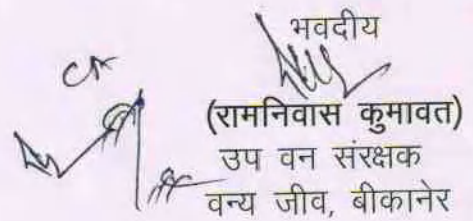 भवदीय
(रामनिवास कुमावत)
उप वन संरक्षक
वन्य जीव, बीकानेर